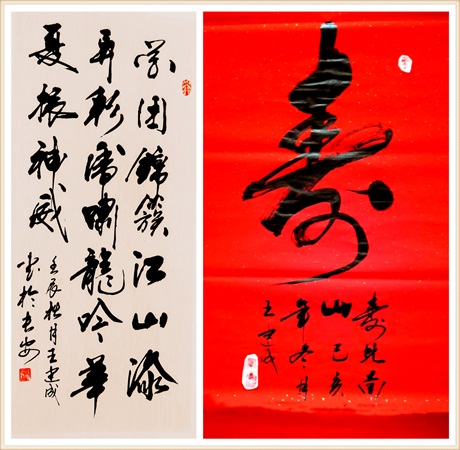 花团锦簇江山添
异彩虎啸龍吟華
夏振神威
壬辰桂月王建成
书于长安
寿
寿比南
山己亥
年冬月
王建成